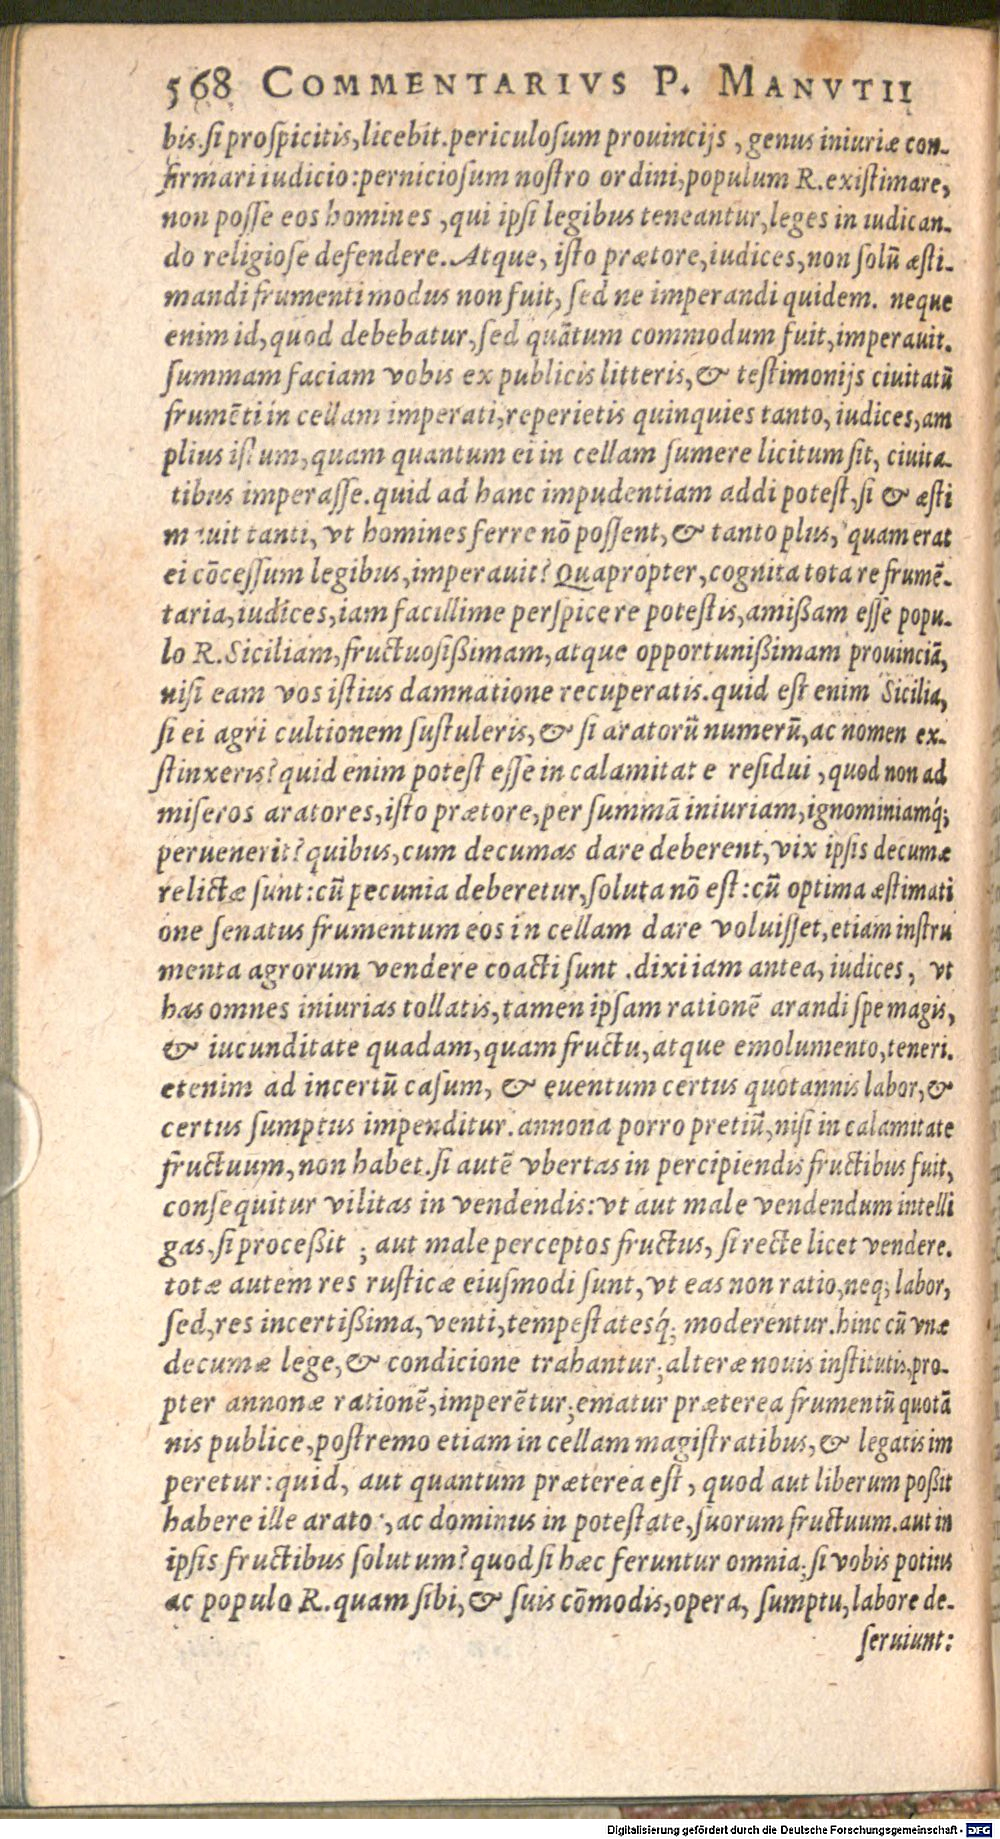 568 COMMENTARIVS P. MANVTII
bis. si prospicitis, licebit. periculosum prouincijs, genus iniuriæ con-
firmari iudicio: perniciosum nostro ordini, populum R. existimare,
non posse eos homines, qui ipsi legibus teneantur, leges in iudican-
do religiose defendere. Atque, isto prætore, iudices, non solũ æsti-
mandi frumenti modus non fuit, sed ne imperandi quidem. neque
enim id, quod debebatur, sed quãtum commodum fuit, imperauit.
summam faciam vobis ex publicis litteris, & testimonijs ciuitatũ
frumẽti in cellam imperati, reperietis quinquies tanto, iudices, am
plius istum, quam quantum ei in cellam sumere licitum sit, ciuita-
tibus imperasse. quid ad hanc impudentiam addi potest, si & æsti
mauit tanti, vt homines ferre nõ possent, & tanto plus, quam erat
ei cõcessum legibus, imperauit? Quapropter, cognita tota re frumẽ-
taria, iudices, iam facillime perspicere potestis, amißam esse popu-
lo R. Siciliam, fructuosißimam, atque opportunißimam prouinciã,
nisi eam vos istius damnatione recuperatis. quid est enim Sicilia,
si ei agri cultionem sustuleris, & si aratorũ numerũ, ac nomen ex-
stinxeris? quid enim potest esse in calamitate residui, quod non ad
miseros aratores, isto prætore, per summã iniuriam, ignominiamq́;
peruenerit? quibus, cum decumas dare deberent, vix ipsis decumæ
relictæ sunt: cũ pecunia deberetur, soluta nõ est: cũ optima æstimati
one senatus frumentum eos in cellam dare voluisset, etiam instru
menta agrorum vendere coacti sunt. dixi iam antea, iudices, vt
has omnes iniurias tollatis, tamen ipsam rationẽ arandi spe magis,
& iucunditate quadam, quam fructu, atque emolumento, teneri.
etenim ad incertũ casum, & euentum certus quotannis labor, &
certus sumptus impenditur. annona porro pretiũ, nisi in calamitate
fructuum, non habet. si autẽ vbertas in percipiendis fructibus fuit,
consequitur vilitas in vendendis: vt aut male vendendum intelli
gas, si proceßit; aut male perceptos fructus, si recte licet vendere.
totæ autem res rusticæ eiusmodi sunt, vt eas non ratio, neq; labor,
sed, res incertißima, venti, tempestatesq́; moderentur. hinc cũ vnæ
decumæ lege, & condicione trahantur; alteræ nouis institutis, pro-
pter annonæ rationẽ, imperẽtur; ematur præterea frumentũ quotã
nis publice, postremo etiam in cellam magistratibus, & legatis im
peretur: quid, aut quantum præterea est, quod aut liberum poßit
habere ille arator, ac dominus in potestate, suorum fructuum. aut in
ipsis fructibus solutum? quod si hæc feruntur omnia; si vobis potius
ac populo R. quam sibi, & suis cõmodis, opera, sumptu, labore de-
seruiunt:
Digitalisierung gefördert durch die Deutsche Forschungsgemeinschaft - DFG